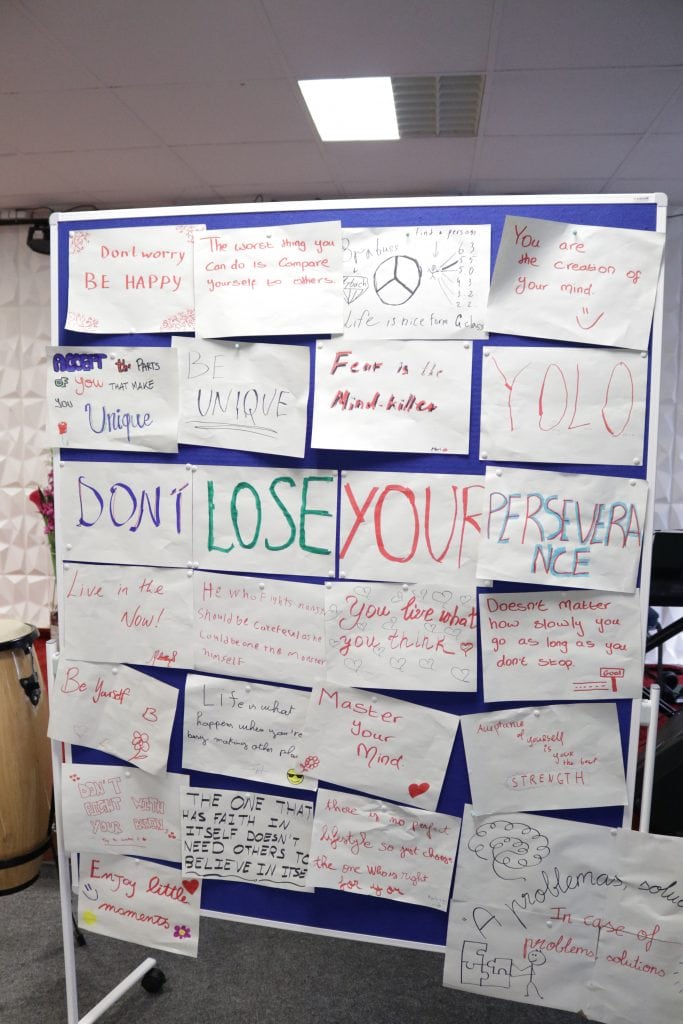 Dont worry
BE HAPPY
The worst thing you
can do is compare
yourself to others.
Find a person
Brabuss
6.3
5.5
5.0
4.3
3.2
2.2
Life is nice form G class
You are
the creation of
your mind.
ACCEPT the PARTS
of you THAT MAKE
you Unique
BE
UNIQUE
Fear is the
Mind-killer
YOLO
DON'T
LOSE
YOUR
PERSEVERA
NCE
Live in the
Now!
He who fights
should be carefull as he
could become the Monster
himself
You live what
you think
Doesn't matter
how slowly you
go as long as you
don't stop.
Goal
Be Yourself
Life is what
happens when you're
busy making other plan
Master
your
Mind.
Acceptance
of yourself
is
your the best
STRENGTH
DON'T
FIGHT WITH
YOUR BRAIN,
THE ONE THAT
HAS FAITH IN
ITSELF DOESN'T
NEED OTHERS TO
BELIEVE IN ITSE
there is no perfect
lifestyle so just choose
the one who is right
for you
Enjoy little
moments
A problemas, soluc
In case of
problems, solutions